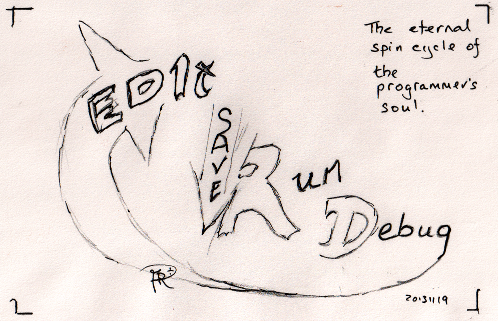 The eternal
spin cycle of
the
programmer's
soul.
EDIt
SAVE
RuM
Debug
20131119